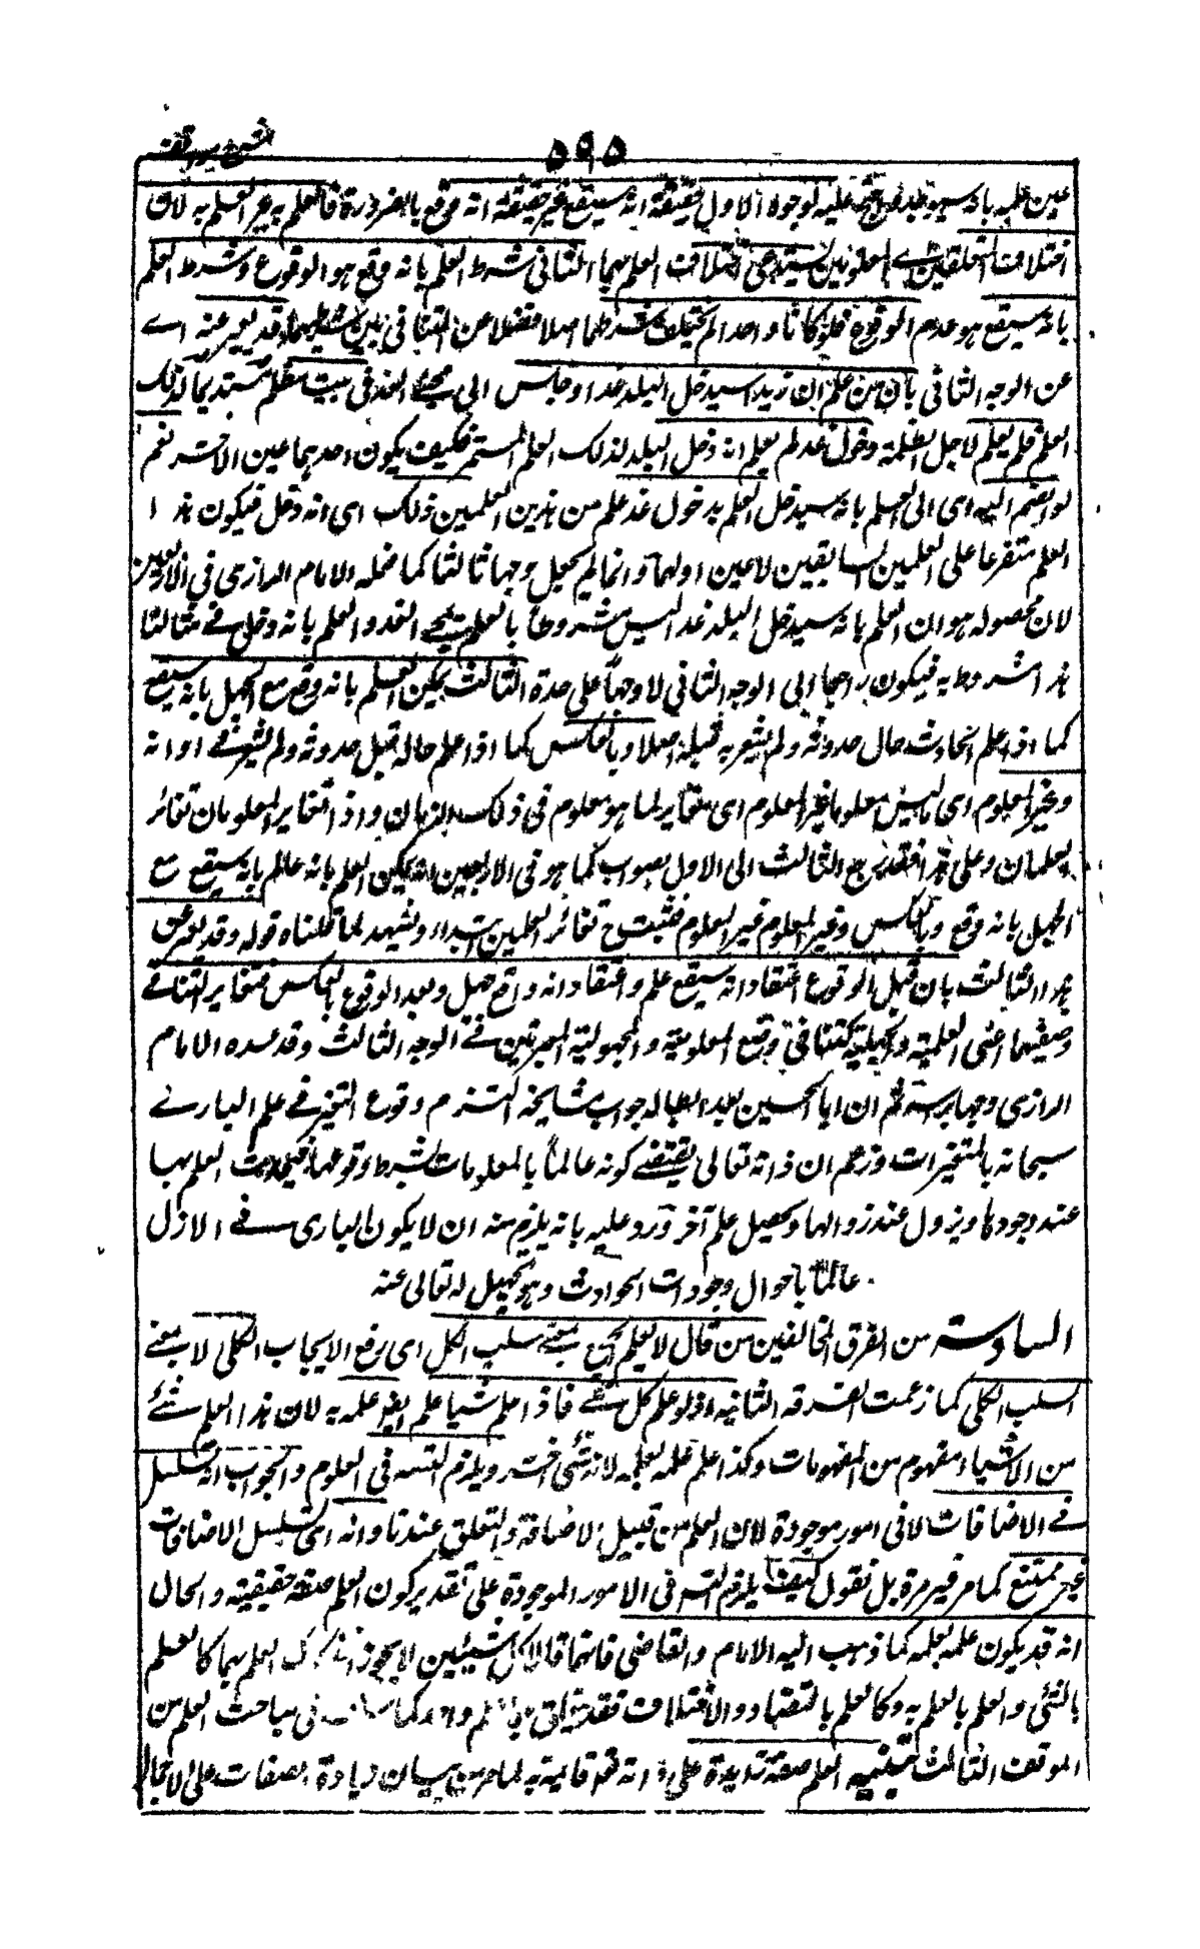 ٥٩٥
عين علمه بانه سيوجد احتج عليه لوجوه الاول حقيقة انه سيقع غير حقيقة انه وقع بالضرورة فالعلم به غير العلم به لان
اختلاف المتعلقين اے المعلومين يستدعى اختلاف العلم بهما الثانى شرط العلم بانه وقع هو الوقوع و شرط العلم
بانه سيقع هو عدم الوقوع فلو كانا واحدا لم يختلف شرطهما اصلا فضلا عن التنافى بين شرطيهما وقد يعبر عنه اے
عن الوجه الثانى بان من علم ان زيدا سيدخل البلد غدا وجلس الى مجئ الغد فى بيت مظلم مستديما لذلك
العلم فلم يعلم لاجل الظلمة دخول غد لم يعلم انه دخل البلد لذلك العلم المستمر فكيف يكون احدهما عين الاخر نعم
لو انضم اليه اى الى العلم بانه سيدخل العلم بدخول غد علم من هذين العلمين ذلك اى انه دخل فيكون هذا
العلم متفرعا على العلمين السابقين لا عين اولهما وانما لم يجعل وجها ثالثا كما فعله الامام الرازى فى الاربعين
لان محصوله هو ان العلم بانه سيدخل البلد غدا ليس مشروطا بالعلم بمجئ الغد والعلم بانه دخل فے مثالنا
هذا مشروط به فيكون راجعا الى الوجه الثانى لا وجها على حدة الثالث يمكن العلم بانه وقع مع الجهل بانه سيقع
كما اذا علم الحادث حال حدوثه ولم يشعر به قبله اصلا وبالعكس كما اذا علم حاله قبل حدوثه ولم يشعر فے اوانه
وغير المعلوم اى ما ليس معلوما غير المعلوم اى مغاير لما هو معلوم فى ذلك الزمان واذا تغاير المعلومان تغائر
العلمان وعلى هذا فقد رجع الثالث الى الاول والصواب كما هو فى الاربعين انه يمكن العلم بانه عالم بانه سيقع مع
الجهل بانه وقع وبالعكس وغير المعلوم غير المعلوم فثبت ح تغائر العلمين ابتداء ويشهد لما قلناه قوله وقد يعبر عن
هذا الثالث بان قبل الوقوع اعتقاد انه سيقع علم واعتقاد انه واقع جهل وبعد الوقوع بالعكس فتغاير لتنافے
وصفيهما اعنى العلمية والجهلية كتنافى وقوع المعلومية والمجهولية المعبرتين فے الوجه الثالث وقد عده الامام
الرازى وجها برأسه ثم ان ابا الحسين بعد ابطاله جواب مشايخه التزم وقوع التغير فے علم البارے
سبحانه بالمتغيرات وزعم ان ذاته تعالى يقتضے كونه عالما بالمعلومات بشرط وقوعها فيحدث العلم بها
عند وجودها ويزول عند زوالها ويحصل علم آخر ورد عليه بانه يلزم منه ان لا يكون البارى فے الازل
عالما باحوال وجودات الحوادث وهو تجهيل له تعالى عنه
السادسة من الفرق المخالفين من قال لا يعلم الجميع بمعنے سلب الكل اى رفع الايجاب الكلى لا بمعنے
السلب الكلى كما زعمت الفرقه الثانيه اذ لو علم كل شئے فاذا علم شيئا علم ايضا علمه به لان هذا العلم شئے
من الاشياء مفهوم من المفهومات وكذا علم علمه بعلمه لانه شئ اخر ويلزم التسه فى العلوم والجواب انه تسلسل
فے الاضافات لا فى امور موجودة لان العلم من قبيل الاضافة والتعلق عندنا وانه اى تسلسل الاضافات
غير ممتنع كما مر غير مرة بل نقول كيف يلزم التسه فى الامور الموجودة على تقدير كون العلم صفة حقيقية والحال
انه قد يكون علمه بعلمه كما ذهب اليه الامام والقاضى فانهما قالا كل شيئين لا يجوز العلم بهما كالعلم
بالشئ والعلم بالعلم به وكالعلم بالتضاد والاختلاف فقد فى مباحث العلم من
الموقف الثالث تنبيه العلم صفة زايدة على ذاته قائمة به لما مر من بيان زيادة الصفات على الاجمال